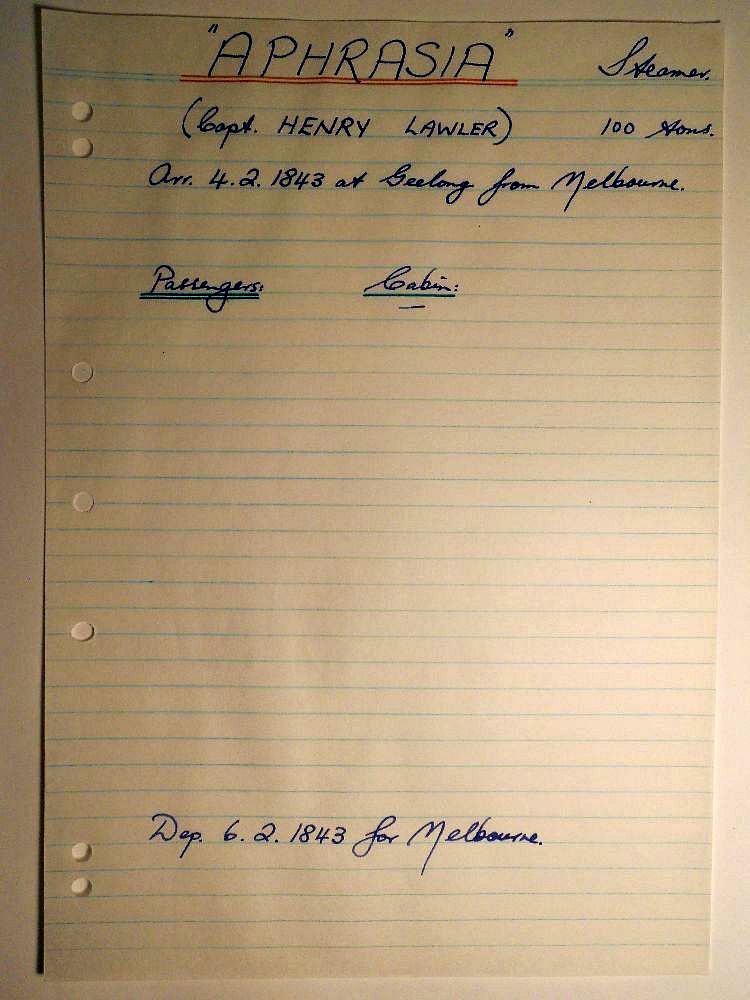 "APHRASIA" Steamer.
(Capt. HENRY LAWLER) 100 tons.
Arr. 4.2.1843 at Geelong from Melbourne.
Passengers: Cabin:
—
Dep. 6.2.1843 for Melbourne.